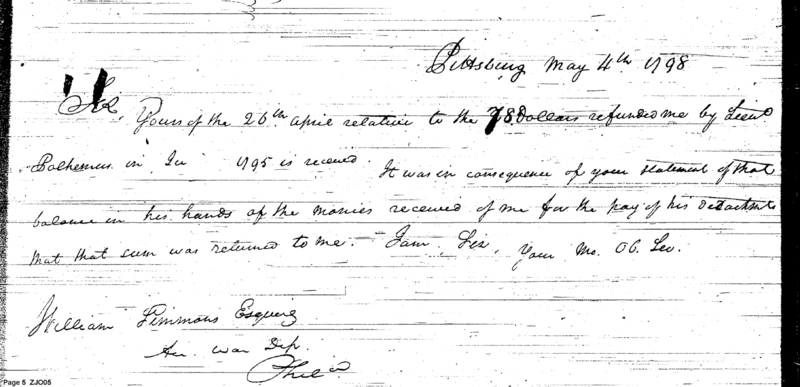 Pittsburg May 4th 1798
Sir,
Yours of the 26th april relative to the 78 Dollars refunded me by Lieut
Polhemus in 1795 is received. It was in consequence of your statement of that
balance in his hands of the monies received of me for the pay of his detachmt
that that sum was returned to me. I am, Sir, Your Mo. Ob. Ser.
William Simmons Esquire
Acc. War Dep.
Phila
Page 5 ZJO05